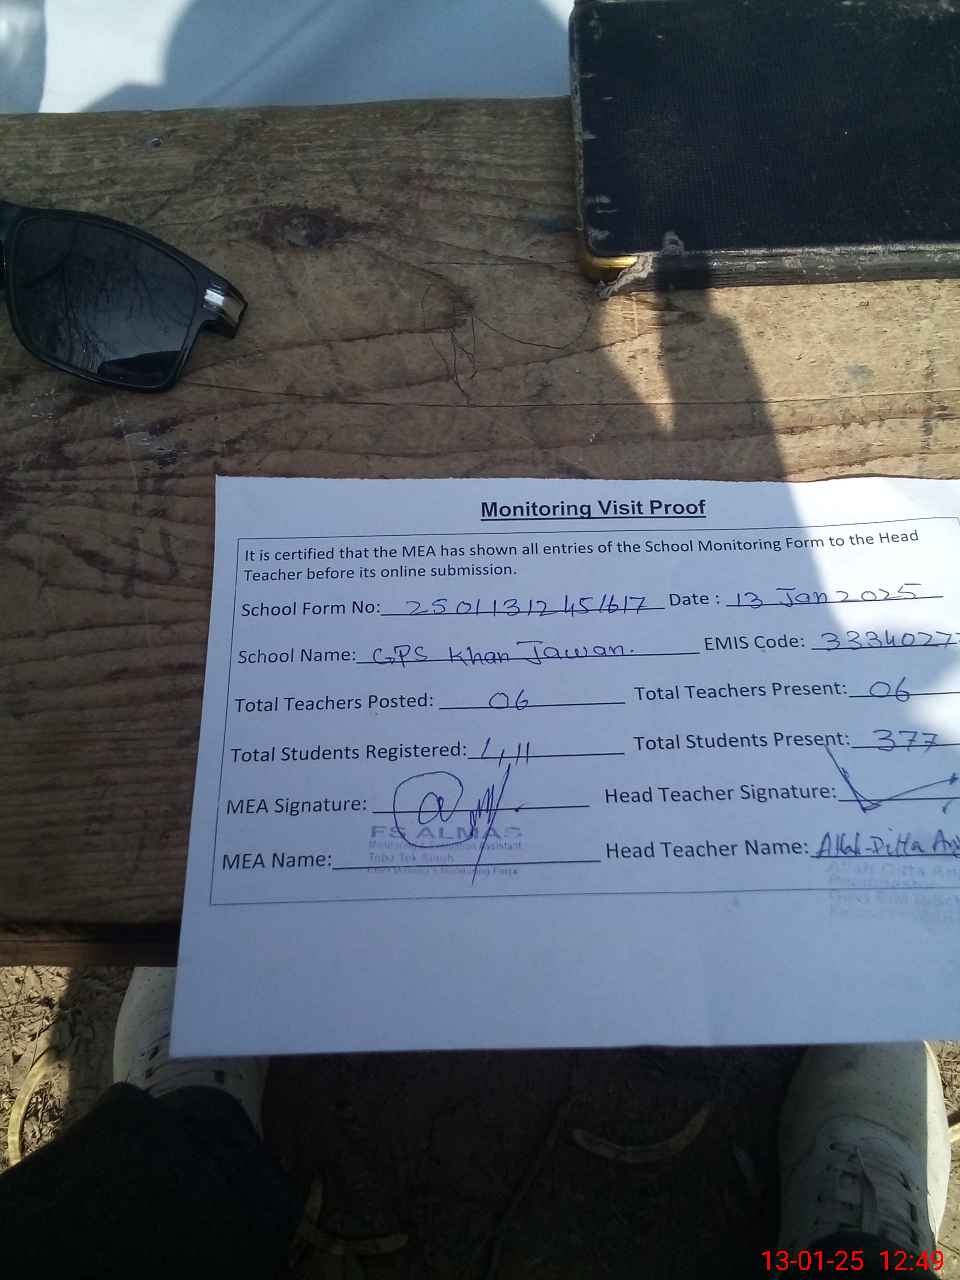 Monitoring Visit Proof
It is certified that the MEA has shown all entries of the School Monitoring Form to the Head
Teacher before its online submission.
School Form No: 25011312451617 Date : 13 Jan 2025
School Name: GPS Khan Jawan. EMIS Code: 3334027
Total Teachers Posted: 06 Total Teachers Present: 06
Total Students Registered: 411 Total Students Present: 377
MEA Signature: Head Teacher Signature:
FS ALMAS
Monitoring & Evaluation Assistant
MEA Name: Head Teacher Name: Allah-Ditta
Toba Tek Singh
Chief Minister's Monitoring Force
Allah Ditta
13-01-25 12:49